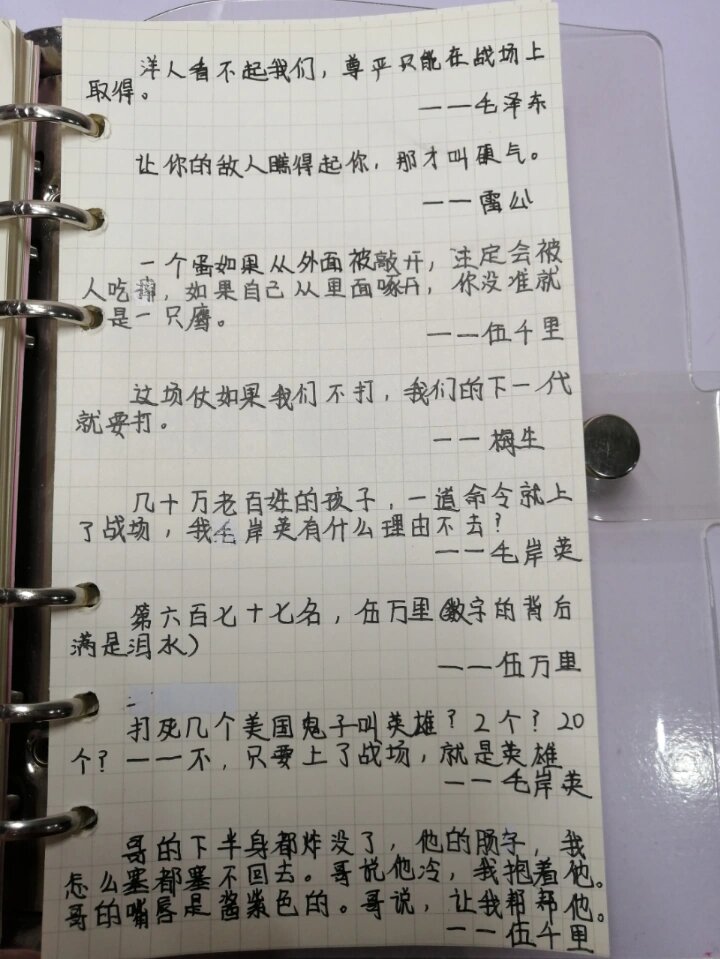 洋人看不起我们，尊严只能在战场上
取得。
——毛泽东
让你的敌人瞧得起你，那才叫硬气。
——雷公
一个蛋如果从外面被敲开，注定会被
人吃，如果自己从里面啄开，你没准就
是一只鹰。
——伍千里
这场仗如果我们不打，我们的下一代
就要打。
——梅生
几十万老百姓的孩子，一道命令就上
了战场，我毛岸英有什么理由不去？
——毛岸英
第六百七十七名，伍万里（数字的背后
满是泪水）
——伍万里
打死几个美国鬼子叫英雄？2个？20
个？——不，只要上了战场，就是英雄
——毛岸英
哥的下半身都炸没了，他的肠子，我
怎么塞都塞不回去。哥说他冷，我抱着他。
哥的嘴唇是酱紫色的。哥说，让我帮帮他。
——伍千里